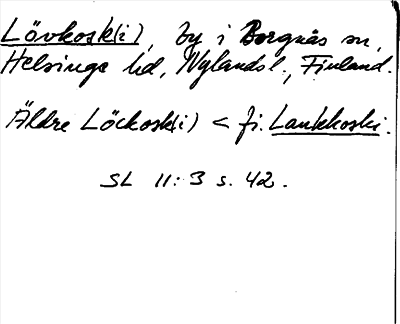 Lövkosk(i), by i Borgnäs sn,
Helsinge hd, Nylands l., Finland.
Äldre Löckosk(i) < fi. Laukkoski.
SL 11:3 s. 42.